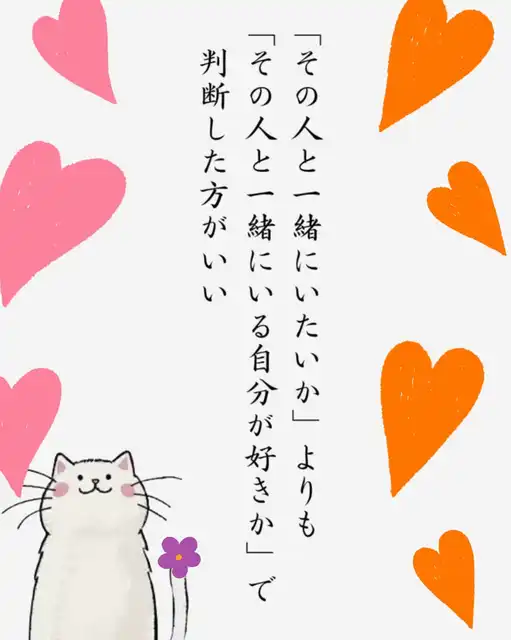 「その人と一緒にいたいか」よりも
「その人と一緒にいる自分が好きか」で
判断した方がいい